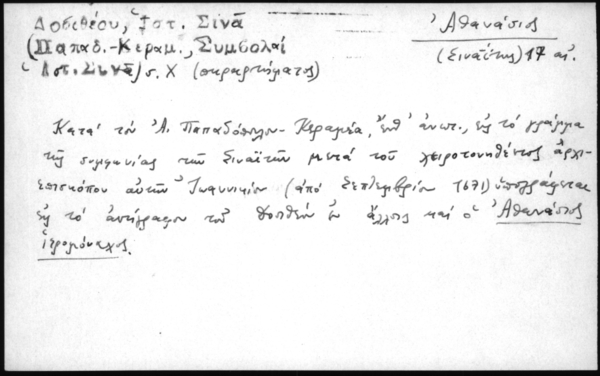 Δοσιθέου, Ἱστ. Σινᾶ
(Παπαδ.-Κεραμ., Συμβολαί
Ἱστ. Σινᾶ) σ. Χ (παραρτήματος)
Ἀθανάσιος
(Σιναΐτης) 17 αἰ.
Κατά τόν Ἀ. Παπαδόπουλον-Κεραμέα, ἔνθ' ἀνωτ., εἰς τό γράμμα
τῆς συμφωνίας τῶν Σιναϊτῶν μετά τοῦ χειροτονηθέντος ἀρχι-
επισκόπου αὐτῶν Ἰωαννικίου (ἀπό Σεπτεμβρίου 1671) ὑπογράφεται
εἰς τό ἀντίγραφον τοῦ ἄλλοις καί ὁ Ἀθανάσιος
ἱερομόναχος.